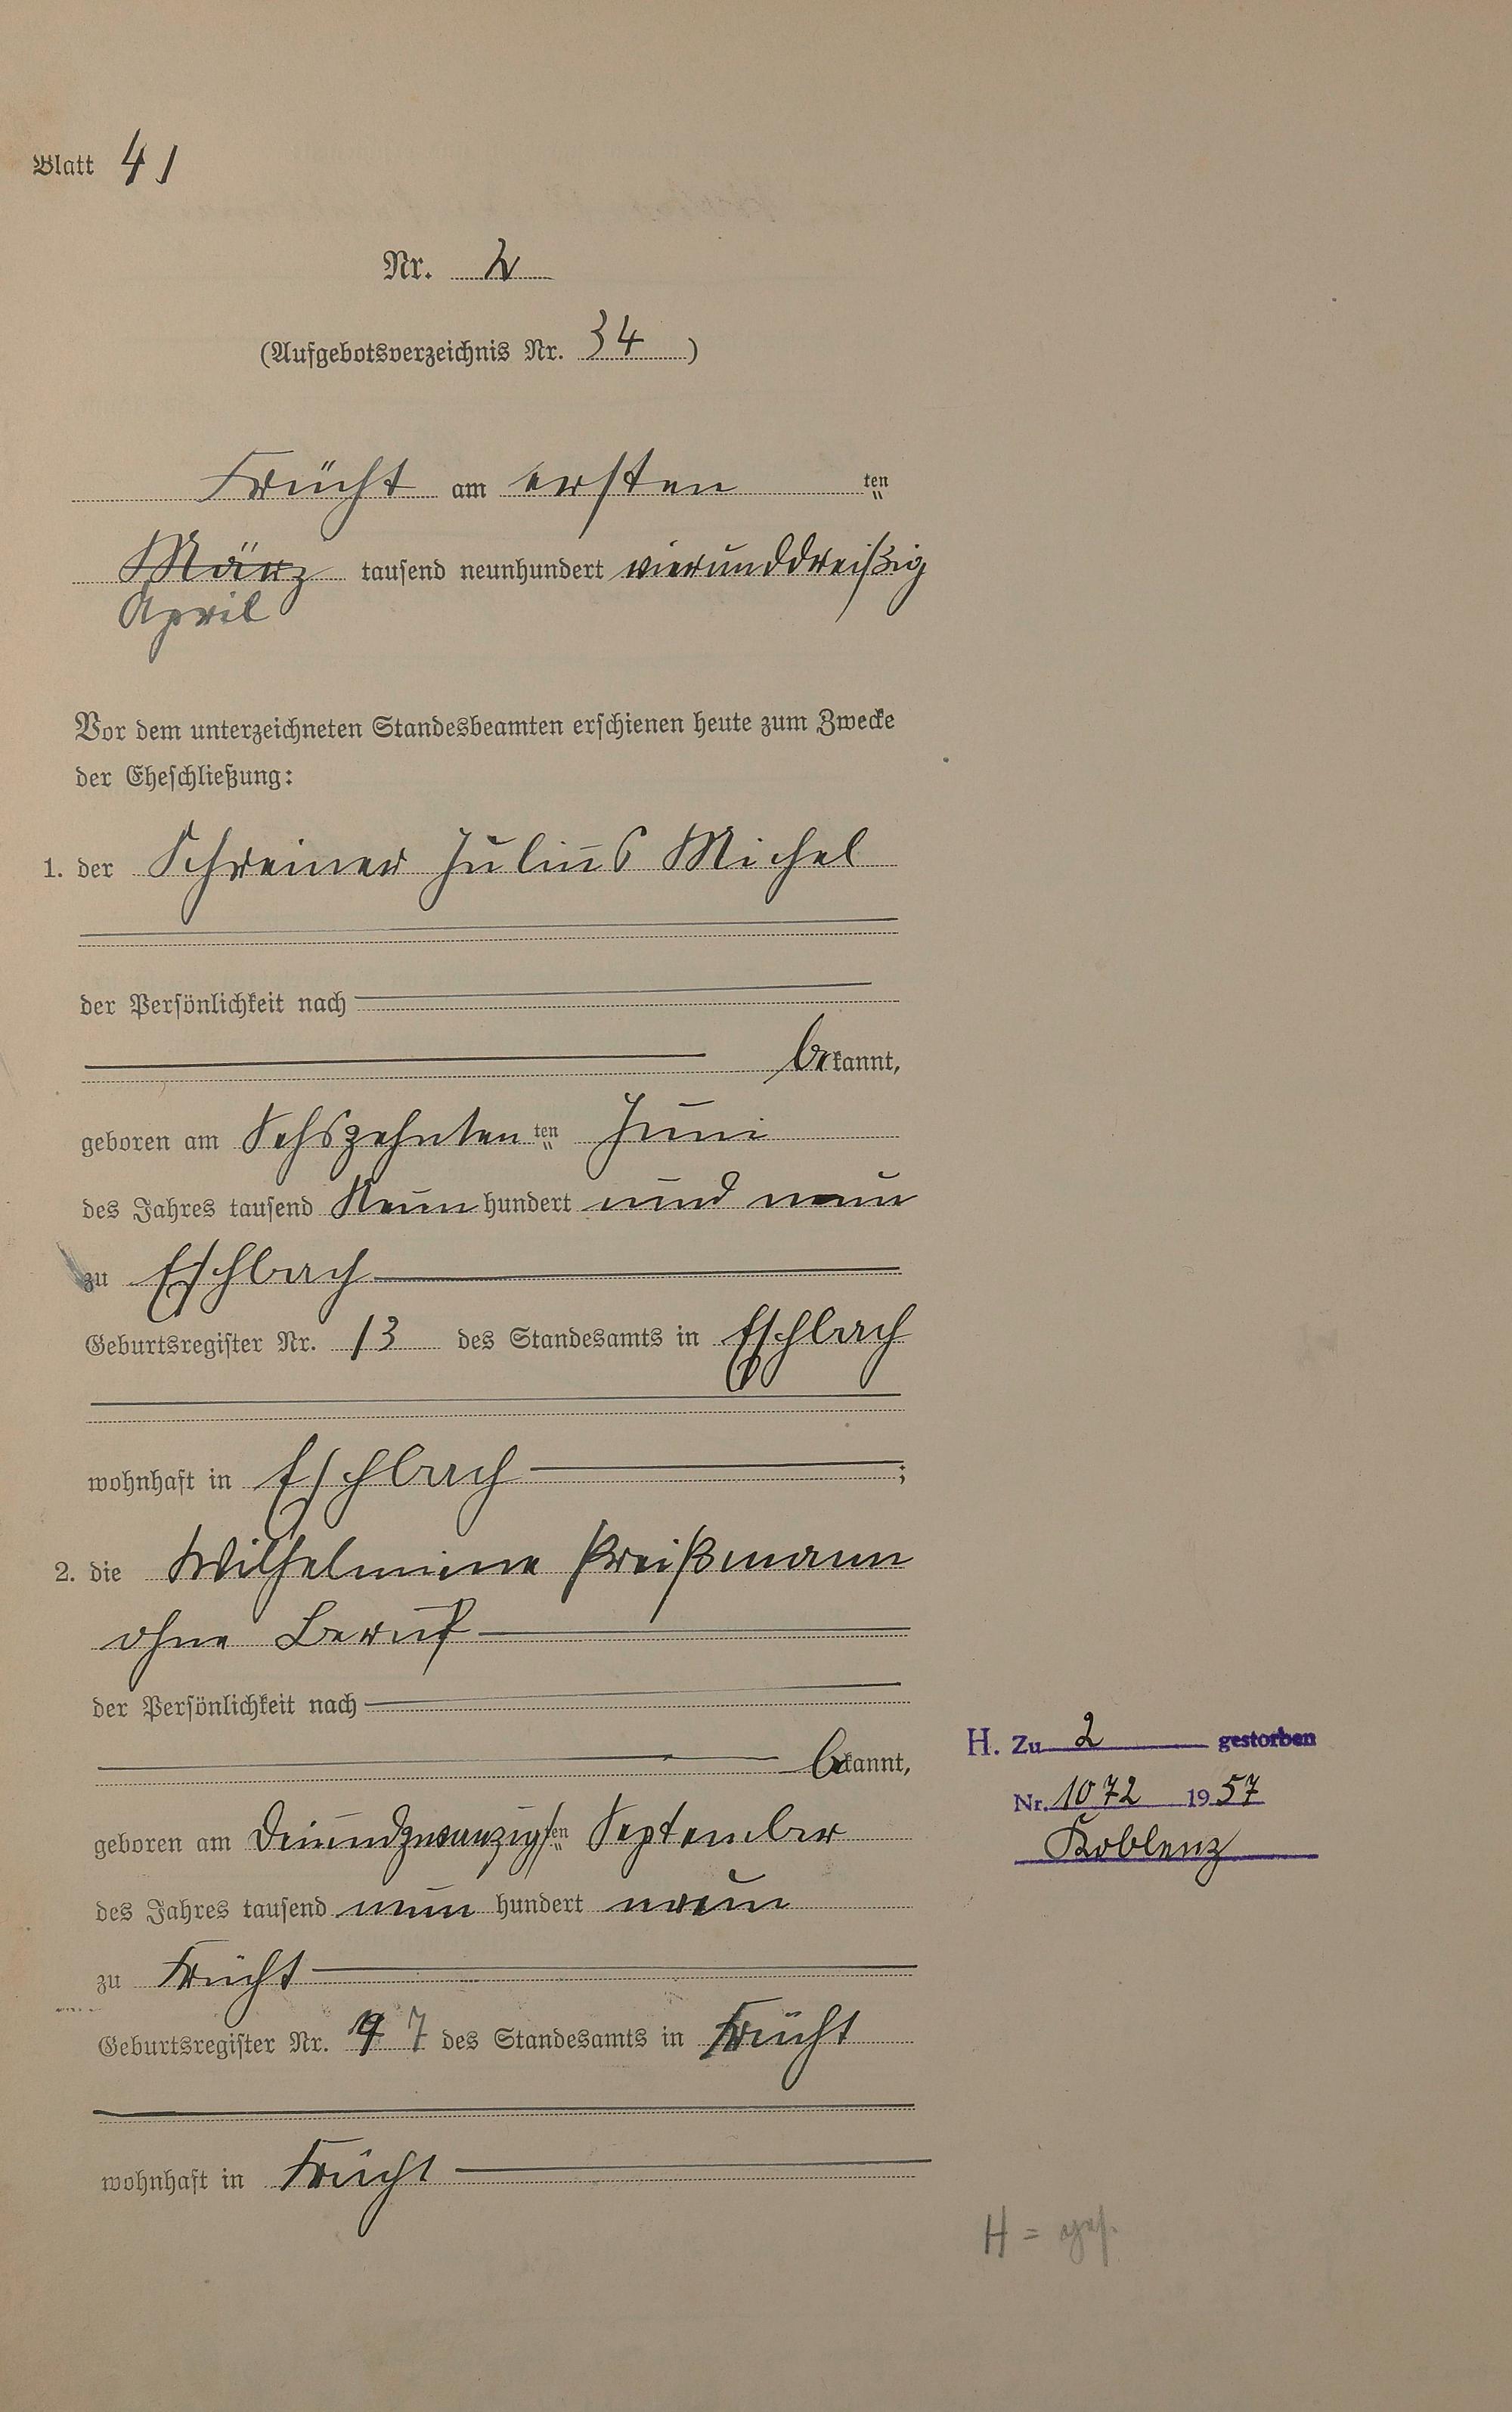 Blatt 41
Nr. 2
(Aufgebotsverzeichnis Nr. 34)
Frücht am ersten ten
März tausend neunhundert vierunddreißig
April
Vor dem unterzeichneten Standesbeamten erschienen heute zum Zwecke
der Eheschließung:
1. der Schreiner Julius Michel
der Persönlichkeit nach
bekannt,
geboren am Sechszehnten ten Juni
des Jahres tausend Neun hundert und neun
zu Eschbach
Geburtsregister Nr. 13 des Standesamts in Eschbach
wohnhaft in Eschbach ;
2. die Wilhelmine Preißmann
ohne Beruf
der Persönlichkeit nach
bekannt,
geboren am ten September
des Jahres tausend neun hundert neun
zu Frücht
Geburtsregister Nr. 7 des Standesamts in Frücht
wohnhaft in Frücht
H. Zu 2 gestorben
Nr. 1072 1957
Koblenz
H = gef.